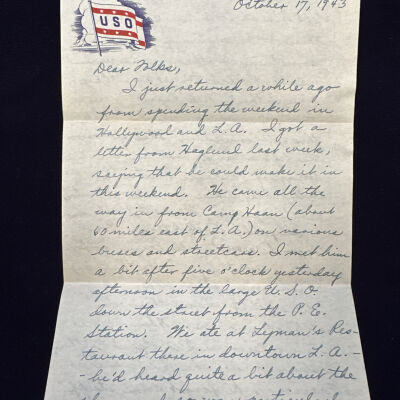 USO
October 17, 1943
Dear Folks,
I just returned a while ago
from spending the weekend in
Hollywood and L.A. I got a
letter from Haglund last week,
saying that he could make it in
this weekend. He came all the
way in from Camp Haan (about
60 miles east of L.A.) on various
buses and streetcars. I met him
a bit after five o'clock yesterday
afternoon in the large U.S.O.
down the street from the P.E.
Station. We ate at Leyman's Res-
taurant there in downtown L.A. -
- he'd heard quite a bit about the